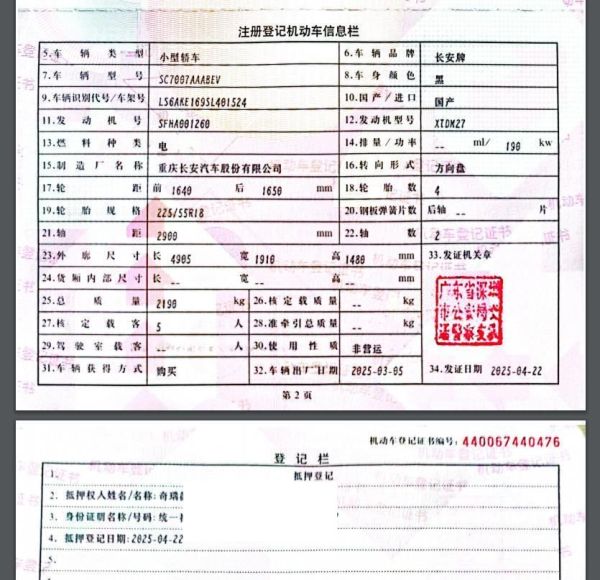 注册登记机动车信息栏
5.车辆类型 小型轿车 6.车辆品牌 长安牌
7.车辆型号 SC7007AAABEV 8.车身颜色 黑
9.车辆识别代号/车架号 LS6AKE169SL401524 10.国产/进口 国产
11.发动机号 SFHA001260 12.发动机型号 XTDM27
13.燃料种类 电 14.排量/功率 -- ml/ 190 kw
15.制造厂名称 重庆长安汽车股份有限公司 16.转向形式 方向盘
17.轮距 前 1640 后 1650 mm 18.轮胎数 4
19.轮胎规格 225/55R18 20.钢板弹簧片数 后轴 -- 片
21.轴距 2900 mm 22.轴数 2
23.外廓尺寸 长 4905 宽 1910 高 1480 mm 33.发证机关章
24.货厢内部尺寸 长 -- 宽 -- 高 -- mm
25.总质量 2190 kg 26.核定载质量 -- kg
27.核定载客 5 人 28.准牵引总质量 -- kg
29.驾驶室载客 -- 人 30.使用性质 非营运
31.车辆获得方式 购买 32.车辆出厂日期 2025-03-05 34.发证日期 2025-04-22
第2页
机动车登记证书编号:440067440476
登记栏
1. 抵押登记
2. 抵押权人姓名/名称:奇瑞
3. 身份证明名称/号码:统一
4. 抵押登记日期:2025-04-22
5.